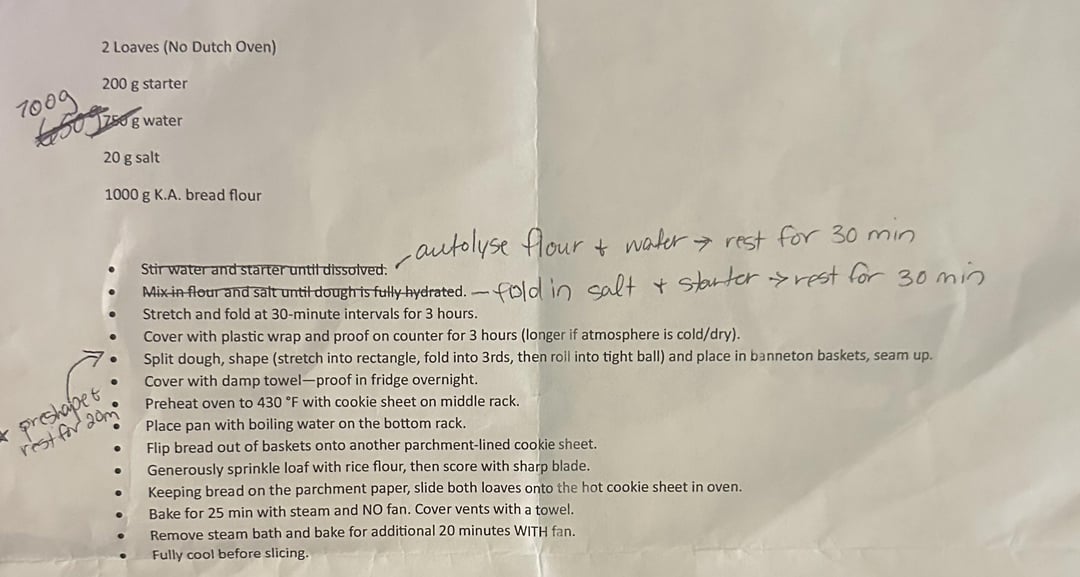 2 Loaves (No Dutch Oven)
200 g starter
700g
650g 750 g water
20 g salt
1000 g K.A. bread flour
autolyse flour + water → rest for 30 min
Stir water and starter until dissolved.
Mix in flour and salt until dough is fully hydrated. — fold in salt + starter → rest for 30 min
Stretch and fold at 30-minute intervals for 3 hours.
Cover with plastic wrap and proof on counter for 3 hours (longer if atmosphere is cold/dry).
Split dough, shape (stretch into rectangle, fold into 3rds, then roll into tight ball) and place in banneton baskets, seam up.
Cover with damp towel—proof in fridge overnight.
preshape +
rest for 20m
Preheat oven to 430 °F with cookie sheet on middle rack.
Place pan with boiling water on the bottom rack.
Flip bread out of baskets onto another parchment-lined cookie sheet.
Generously sprinkle loaf with rice flour, then score with sharp blade.
Keeping bread on the parchment paper, slide both loaves onto the hot cookie sheet in oven.
Bake for 25 min with steam and NO fan. Cover vents with a towel.
Remove steam bath and bake for additional 20 minutes WITH fan.
Fully cool before slicing.